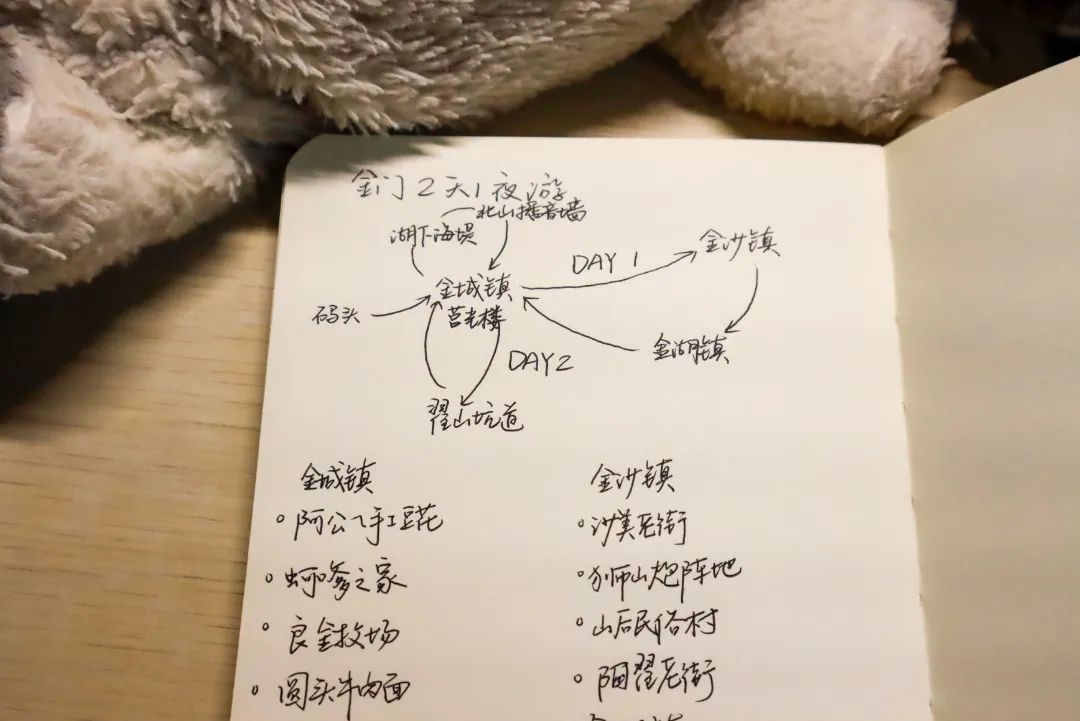 金门2天1夜游
北山播音墙
湖下海堤
金沙镇
DAY 1
金城镇
莒光楼
码头
金湖镇
DAY2
翟山坑道
金城镇
阿公ㄟ手工豆花
蚵爹之家
良金牧场
圆头牛肉面
金沙镇
沙美老街
狮山炮阵地
山后民俗村
阳翟老街